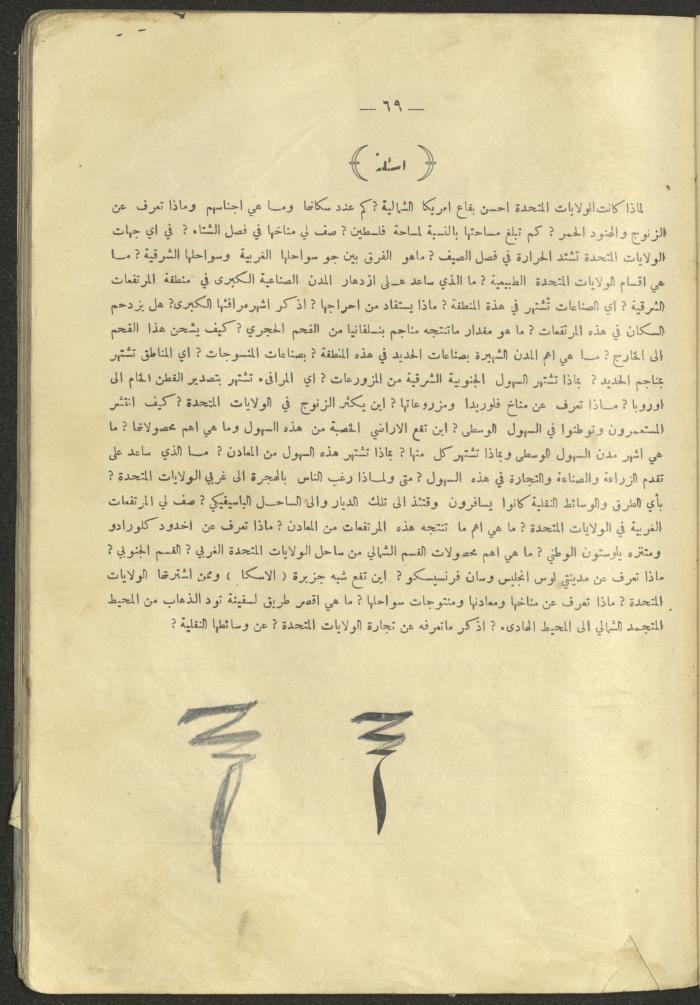 — ٦٩ —
( اسئلة )
لماذا كانت الولايات المتحدة احسن بقاع امريكا الشمالية ? كم عدد سكانها وما هي اجناسهم وماذا تعرف عن
الزنوج والهنود الحمر ? كم تبلغ مساحتها بالنسبة لمساحة فلسطين ? صف لي مناخها في فصل الشتاء ? في اي جهات
الولايات المتحدة تشتد الحرارة في فصل الصيف ? ماهو الفرق بين جو سواحلها الغربية وسواحلها الشرقية ? مـا
هي اقسام الولايات المتحدة الطبيعية ? ما الذي ساعد عـلى ازدهار المدن الصناعية الكبرى في منطقة المرتفعات
الشرقية ? اي الصناعات تُشتهر في هذة المنطقة ? ماذا يستفاد من احراجها ? اذكر اشهر مرافئها الكبرى? هل يزدحم
السكان في هذه المرتفعات ? ما هو مقدار ماتنتجه مناجم بنسلفانيا من الفحم الحجري ? كيف يشحن هذا الفحم
الى الخارج ? مـا هي اهم المدن الشهيرة بصناعات الحديد في هذه المنطقة ? بصناعات المنسوجات ? اي المناطق تشتهر
بمناجم الحديد ? بماذا تشتهر السهول الجنوبية الشرقية من المزروعات ? اي المرافىء تشتهر بتصدير القطن الخام الى
اوروبا ? مـاذا تعرف عن مناخ فلوريدا ومزروعاتها ? اين يكثر الزنوج في الولايات المتحدة ? كيف انتشر
المستعمرون وتوطنوا في السهول الوسطى ? اين تقع الاراضي الخصبة من هذه السهول وما هي اهم محصولاتها ? ما
هي اشهر مدن السهول الوسطى وبماذا تشتهر كل منها ? بماذا تشتهر هذه السهول من المعادن ? مـا الذي ساعد على
تقدم الزراعة والصناعة والتجارة في هذه السهول ? متى ولمـاذا رغب الناس بالهجرة الى غربي الولايات المتحدة ?
بأي الطرق والوسائط النقلية كانوا يسافرون وقتئذ الى تلك الديار والى الساحـل الباسيفيكي ? صف لي المرتفعات
الغربية في الولايات المتحدة ? ما هي اهم ما تنتجه هذه المرتفعات من المعادن ? ماذا تعرف عن اخدود كلورادو
ومنتزه يلوستون الوطني ? ما هي اهم محصولات القسم الشمالي من ساحل الولايات المتحدة الغربي ? القسم الجنوبي ?
ماذا تعرف عن مدينتي لوس انجليس وسان فرنسيسكو ? اين تقع شبه جزيرة ( الاسكا ) وممن اشترتها الولايات
المتحدة ? ماذا تعرف عن مناخها ومعادنها ومنتوجات سواحلها ? ما هي اقصر طريق لسفينة تود الذهاب من المحيط
المتجمد الشمالي الى المحيط الهادىء ? اذكر ماتعرفه عن تجارة الولايات المتحدة ? عن وسائطها النقلية ?